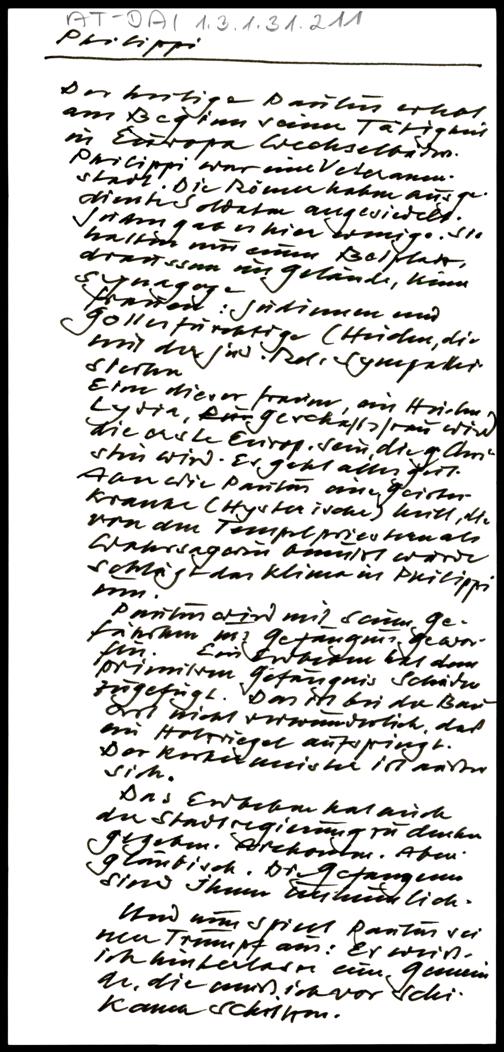 AT-DAI 1.3.1.31.211
Philippi
Der heilige Paulus erlebt
am Beginn seiner Tätigkeit
in Europa Wechselbäder.
Philippi war eine Veteranen-
stadt. Die Römer haben ausge-
diente Soldaten angesiedelt.
Juden gab es hier wenige. Sie
hatten nur einen Betplatz,
draussen im Gelände, keine
Synagoge
Frauen: Jüdinnen und
Gottesfürchtige (Heiden, die
mit der jüd. Rel. sympathi-
sierten
Eine dieser Frauen, ein Heidin,
Lydia, Geschäftsfrau wird
die erste Europ. sein, die Chri-
stin wird. Es geht alles gut.
Aber wie Paulus eine Geistes-
kranke (Hysterische) heilt, die
von den Tempelpriestern als
Wahrsagerin benützt wurde
schlägt das Klima in Philippi
um.
Paulus wird mit seinen Ge-
fährten ins Gefängnis gewor-
fen. Ein Erdbeben hat dem
primitiven Gefängnis Schaden
zugefügt. Das ist bei der Bau
Art nicht verwunderlich, daß
ein Holzriegel aufspringt.
Der Kerkermeister ist ausser
sich.
Das Erdbeben hat auch
der Stadtregierung zu denken
gegeben. Archonten. Aber-
gläubisch. Die Gefangenen
sind ihnen unheimlich.
Und nun spielt Paulus sei
nen Trumpf aus: Er weiß,
ich hinterlasse eine Gemein
de, die muß ich vor Schi-
kanen schützen.